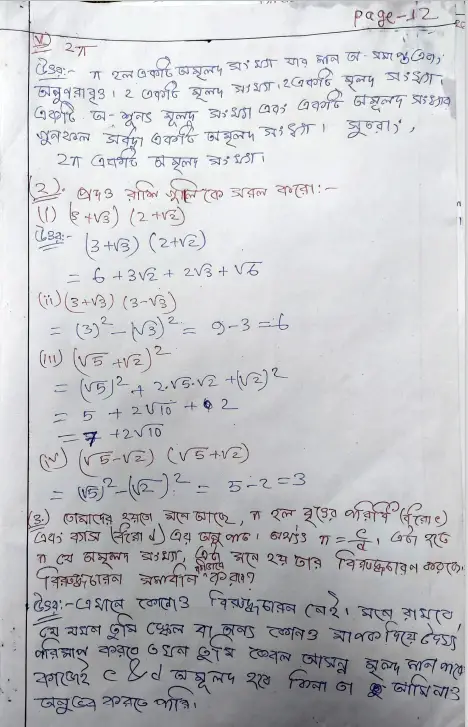 Page-12
(v) 2π
উত্তৰ:- π হল একটি অমূলদ সংখ্যা যার মান অ-সমাপ্ত এবং
অনাবৃত্ত। 2 একটি মূলদ সংখ্যা। একটি মূলদ সংখ্যা
একটি অ-শূন্য মূলদ সংখ্যা এবং একটি অমূলদ সংখ্যার
গুনফল সর্বদা একটি অমূলদ সংখ্যা। সুতরাং,
2π একটি অমূলদ সংখ্যা।
(2). প্রদত্ত রাশি গুলিকে সরল করো:-
(i) (3+√3) (2+√2)
উত্তর:- (3+√3) (2+√2)
= 6 + 3√2 + 2√3 + √6
(ii) (3+√3) (3-√3)
= (3)² - (√3)² = 9-3 = 6
(iii) (√5 + √2)²
= (√5)² + 2.√5.√2 + (√2)²
= 5 + 2√10 + 2
= 7 + 2√10
(iv) (√5-√2) (√5+√2)
= (√5)² - (√2)² = 5-2 = 3
(3.) তোমাদের হয়তো মনে আছে, π হল বৃত্তের পরিধি (ধরো c)
এবং ব্যাস (ধরো d) এর অনুপাত। অর্থাৎ π = c/d, এটা হতে
π যে অমূলদ সংখ্যা, এটা মনে হয় তার বিরুদ্ধাচারন করছে।
বিরুদ্ধাচারন সমাধান কিভাবে করবে?
উত্তর:- এখানে কোনও বিরুদ্ধাচারন নেই। মনে রাখবে
যে যখন তুমি স্কেল বা অন্য কোনও মাপক দিয়ে দৈর্ঘ্য
পরিমাপ করবে তখন তুমি কেবল আসন্ন মূলদ মান পাবে
কাজেই c & d অমূলদ হবে কিনা তা আমরাও
অনুভব করতে পারি।